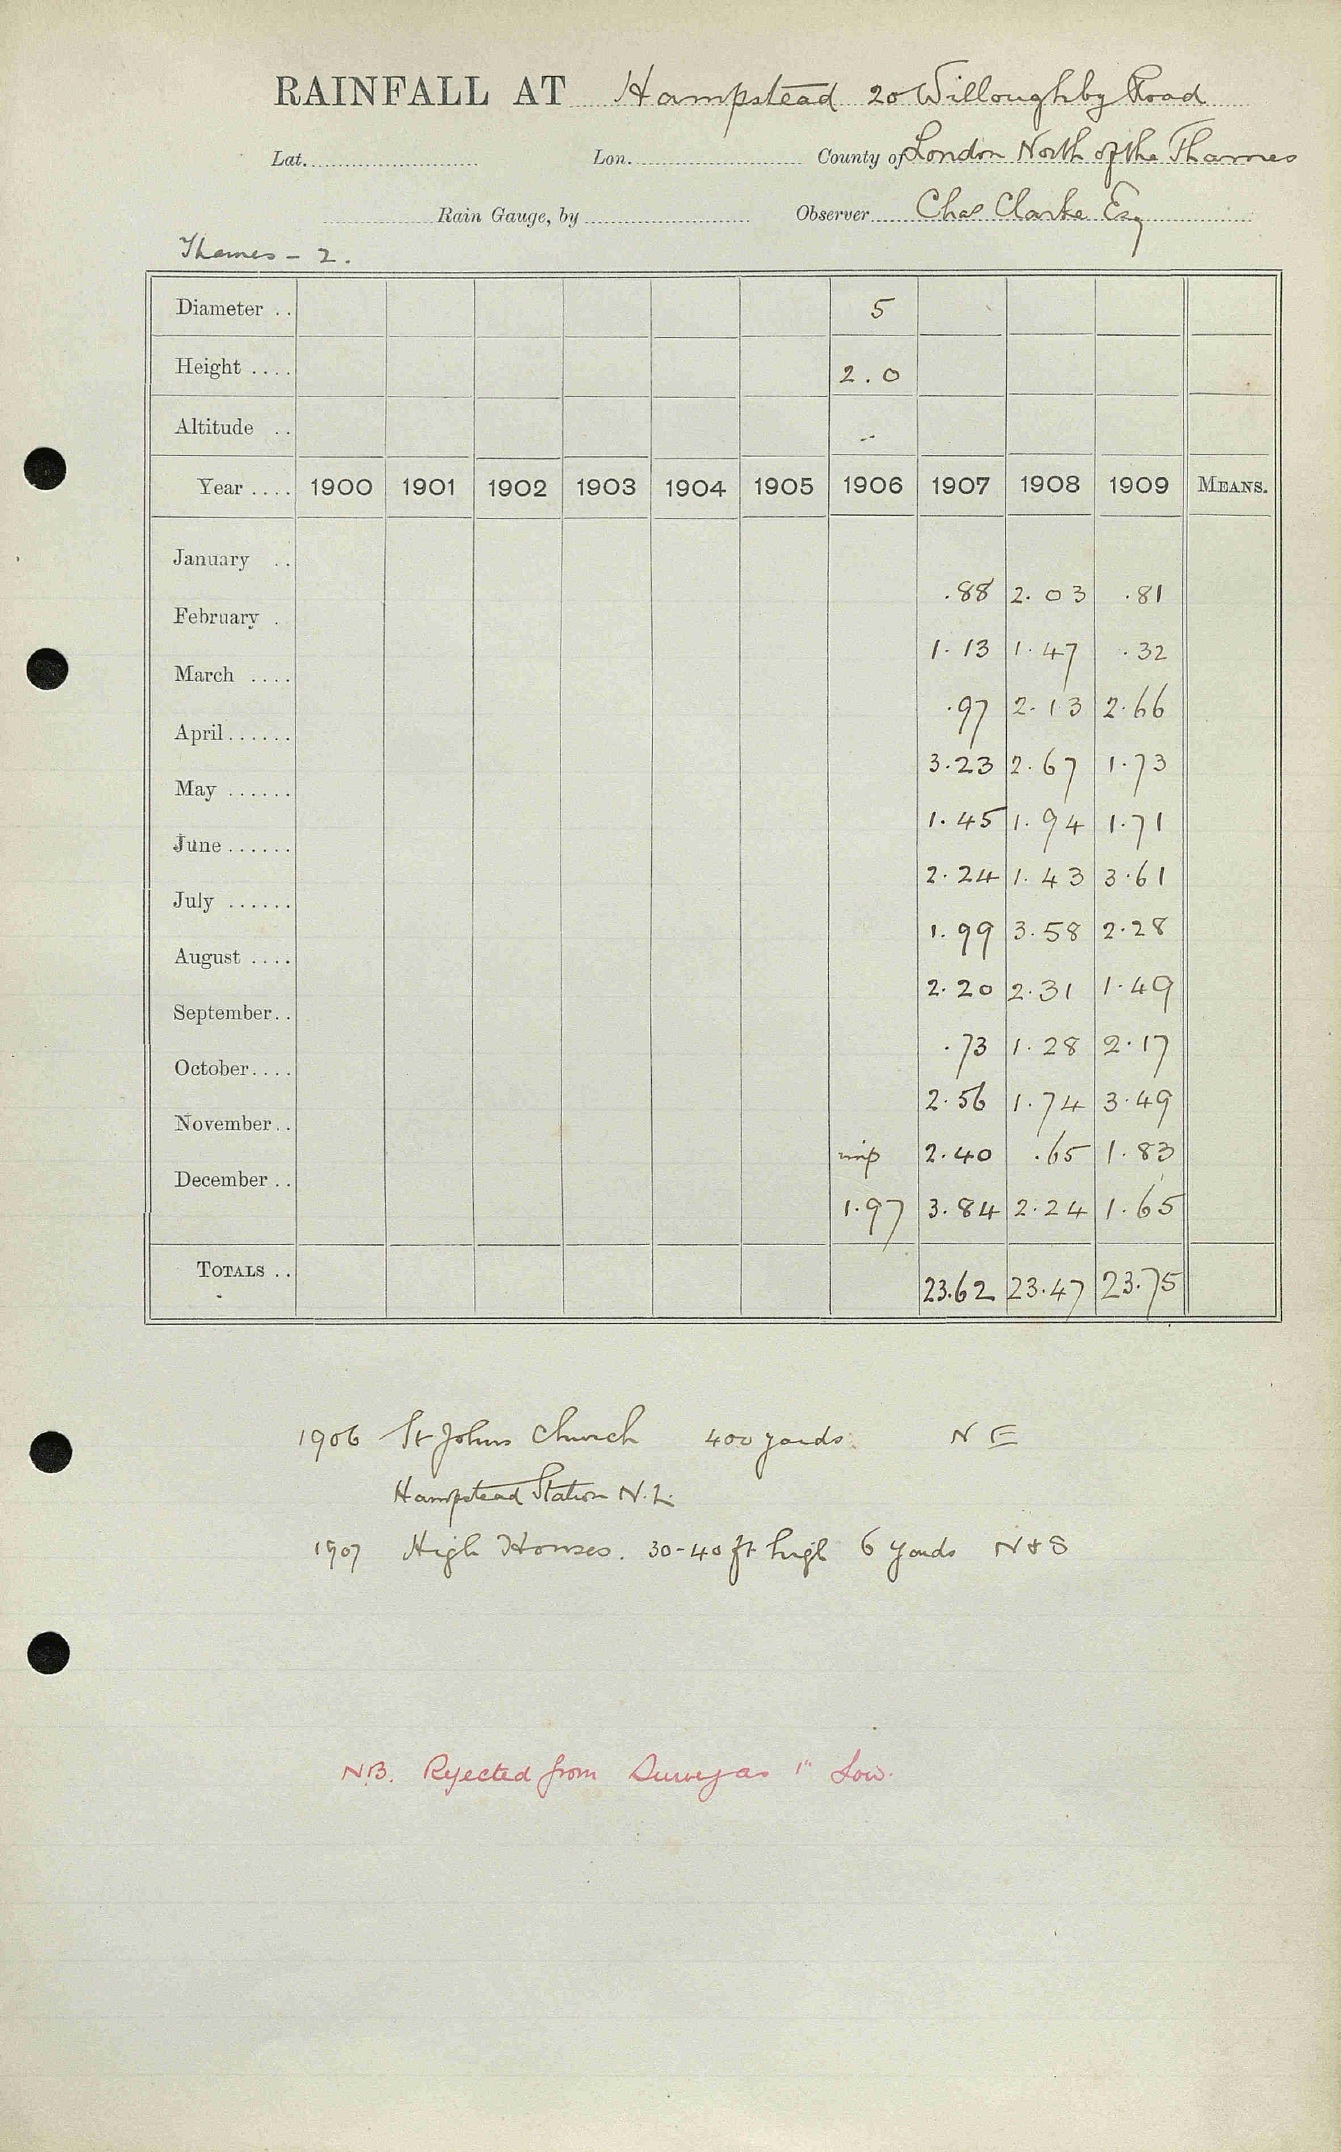 RAINFALL AT Hampstead 20 Willoughby Road
Lat. Lon. County of London North of the Thames
Rain Gauge, by Observer Chas Clarke Esq
Thames - 2.
Diameter .. 5
Height .... 2.0
Altitude .. -
Year .... 1900 1901 1902 1903 1904 1905 1906 1907 1908 1909 MEANS.
January .. .88 2.03 .81
February . 1.13 1.47 .32
March .... .97 2.13 2.66
April...... 3.23 2.67 1.73
May ...... 1.45 1.94 1.71
June ...... 2.24 1.43 3.61
July ...... 1.99 3.58 2.28
August .... 2.20 2.31 1.49
September.. .73 1.28 2.17
October.... 2.56 1.74 3.49
November.. imp 2.40 .65 1.83
December .. 1.97 3.84 2.24 1.65
TOTALS .. 23.62 23.47 23.75
1906 St Johns Church 400 yards. N E
Hampstead Station N.L.
1907 High Houses. 30-40 ft high 6 yards N & S
N.B. Rejected from Survey as 1" Low.